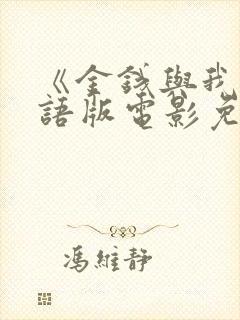 《金錢與我
語版電影免
馮維靜